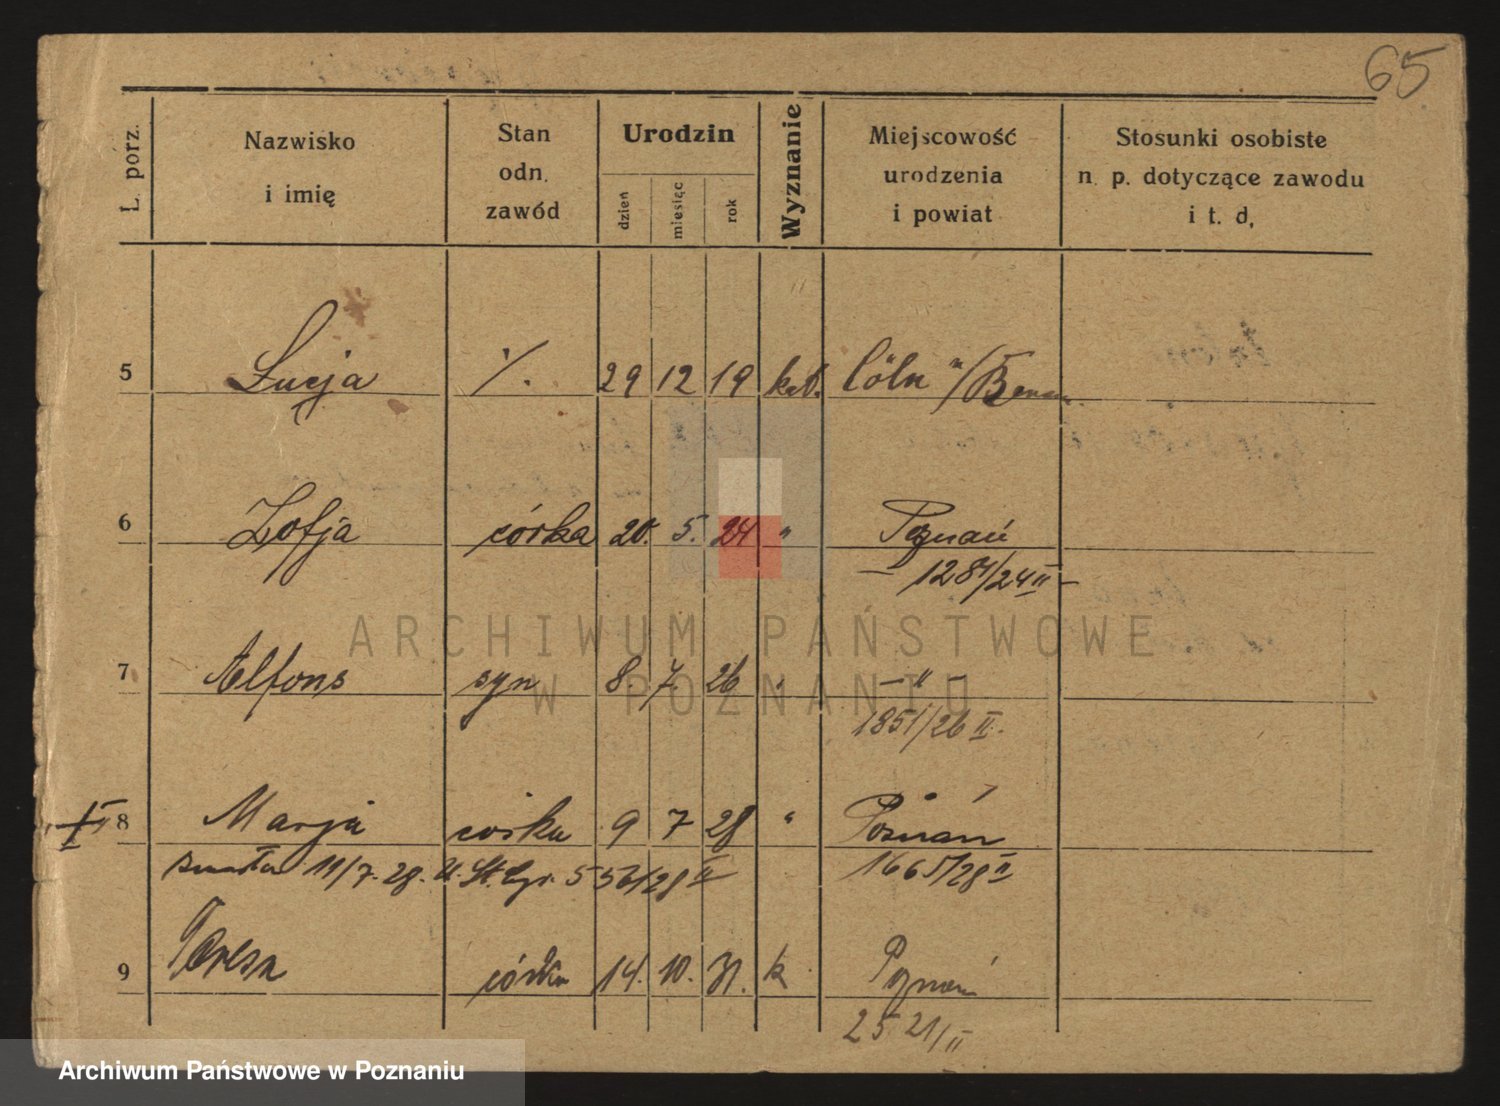 65
L. porz.
Nazwisko
i imię
Stan
odn.
zawód
Urodzin
dzień
miesiąc
rok
Wyznanie
Miejscowość
urodzenia
i powiat
Stosunki osobiste
n. p. dotyczące zawodu
i t. d.
5 Łucja 29 12 19 kat. Cöln
6 Zofja córka 20. 5. 24 " Poznań
1281/24 II
7 Alfons syn 8. 7. 26 " — " —
1851/26 II.
8 Marja córka 9 7 28 " Poznań
zmarła 11/7. 28. U. St. 556/28 II 1665/28 II
9 Teresa córka 14. 10. 31. k Poznań
2521/II
ARCHIWUM PAŃSTWOWE
W POZNANIU
Archiwum Państwowe w Poznaniu